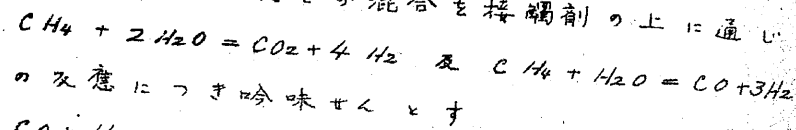 混合を接觸劑の上に通じ
CH4 + 2H2O = CO2 + 4H2 及 CH4 + H2O = CO + 3H2
の反應につき吟味せんとす